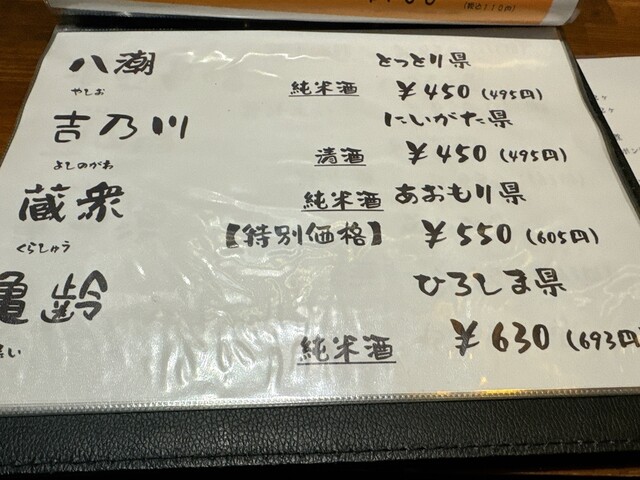 (税込110円)
八潮 とっとり県
やしお 純米酒 ¥450 (495円)
吉乃川 にいがた県
よしのがわ 清酒 ¥450 (495円)
蔵衆 純米酒 あおもり県
くらしゅう 【特別価格】 ¥550 (605円)
亀齢 ひろしま県
純米酒 ¥630 (693円